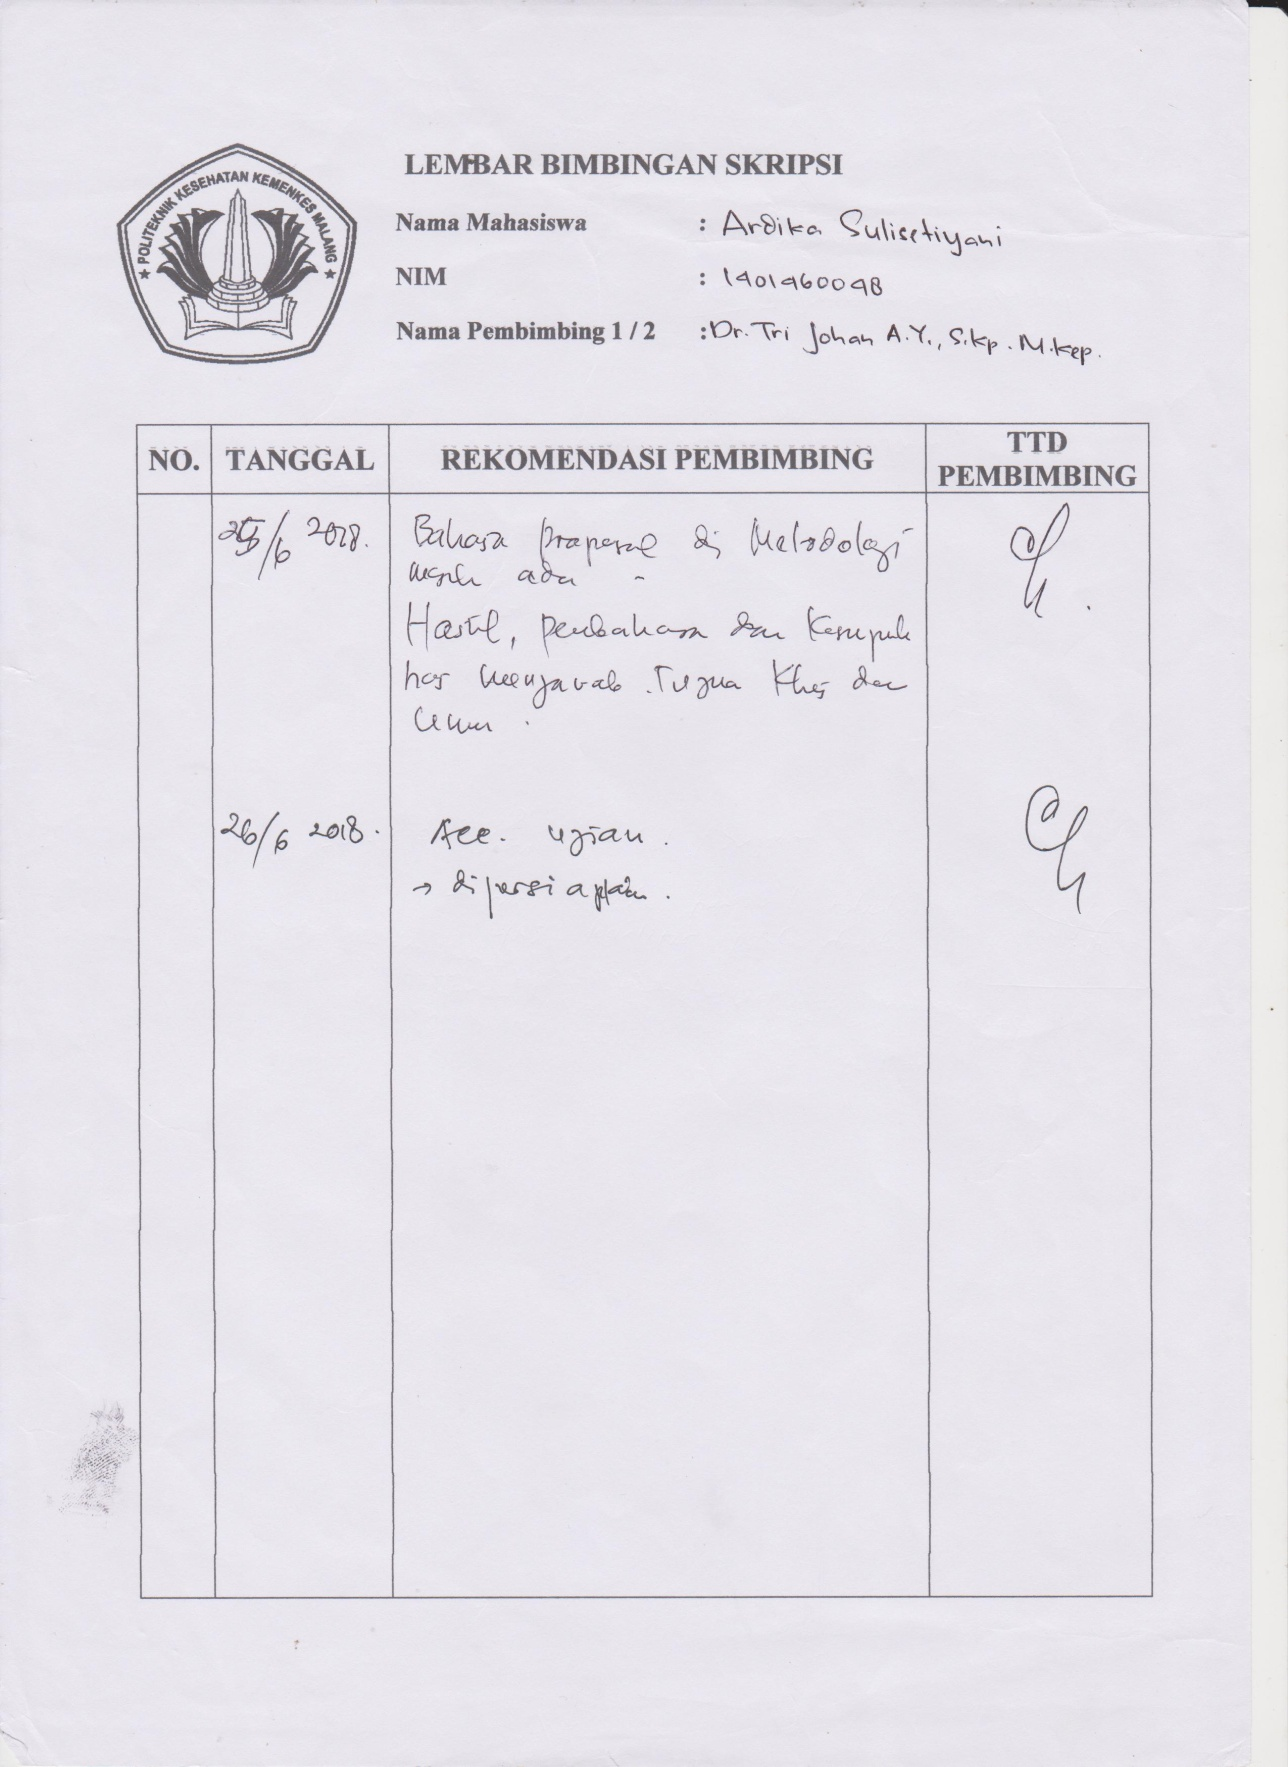 POLITEKNIK KESEHATAN KEMENKES MALANG
LEMBAR BIMBINGAN SKRIPSI
Nama Mahasiswa : Ardika Sulisetiyani
NIM : 1401460048
Nama Pembimbing 1 / 2 : Dr. Tri Johan A.Y., S.Kp. M.Kep.
NO. TANGGAL REKOMENDASI PEMBIMBING TTD PEMBIMBING
25/6 2018. Bahasa proposal di Metodologi
masih ada
Hasil, pembahasan dan Kesimpul
hrs menjawab Tujuan Khs dan
Umum.
26/6 2018. Acc. ujian.
→ dipersiapkan.